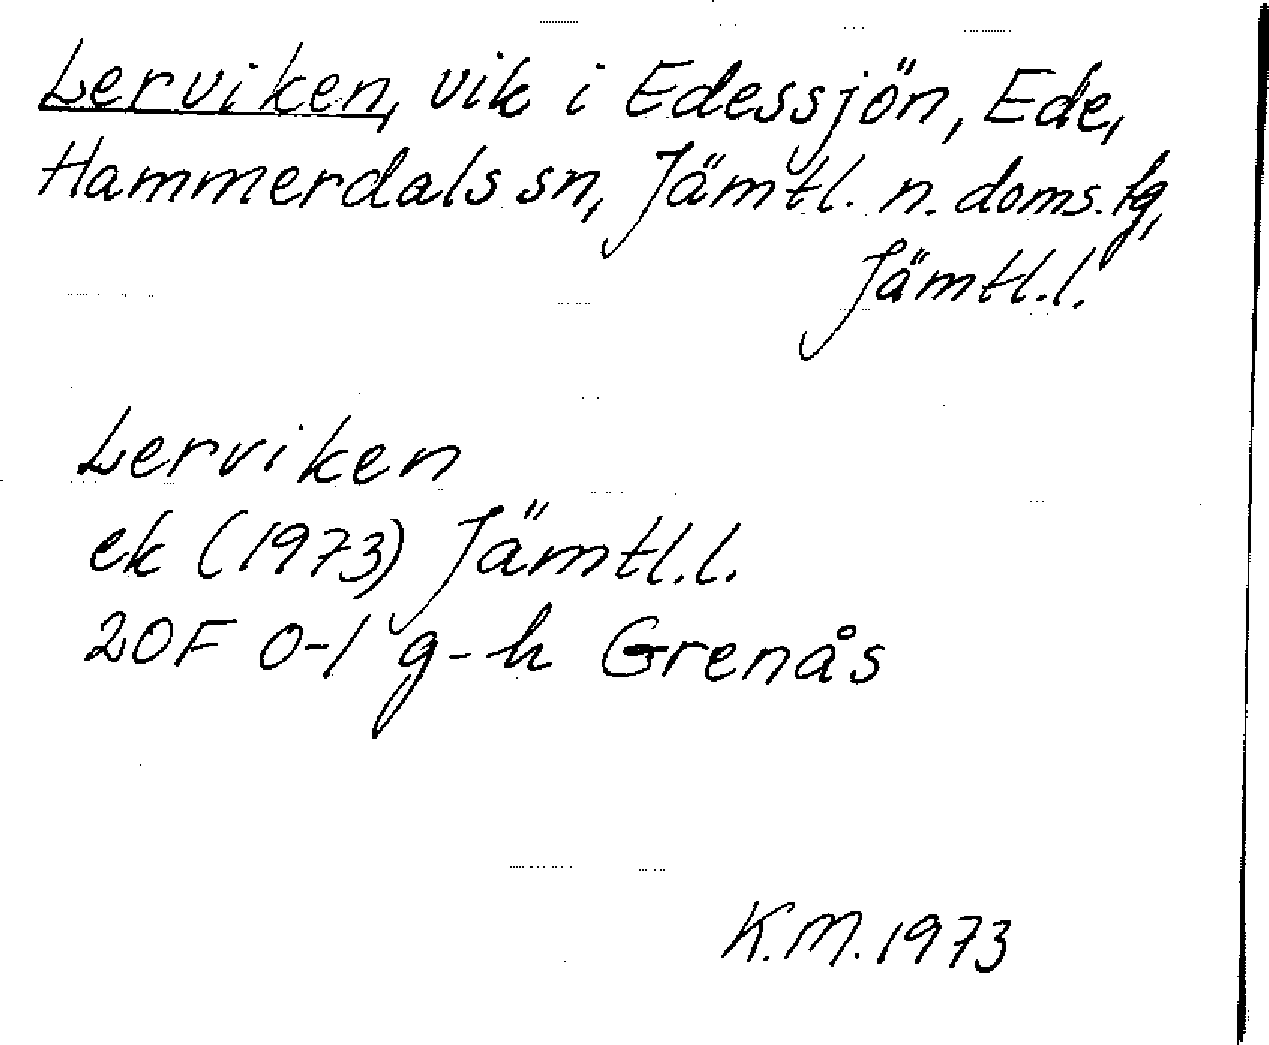 Lerviken, vik i Edessjön, Ede,
Hammerdals sn, Jämtl. n. doms. tg,
Jämtl.l.
Lerviken
ek (1973) Jämtl.l.
20F 0-1 g-h Grenås
K.M. 1973